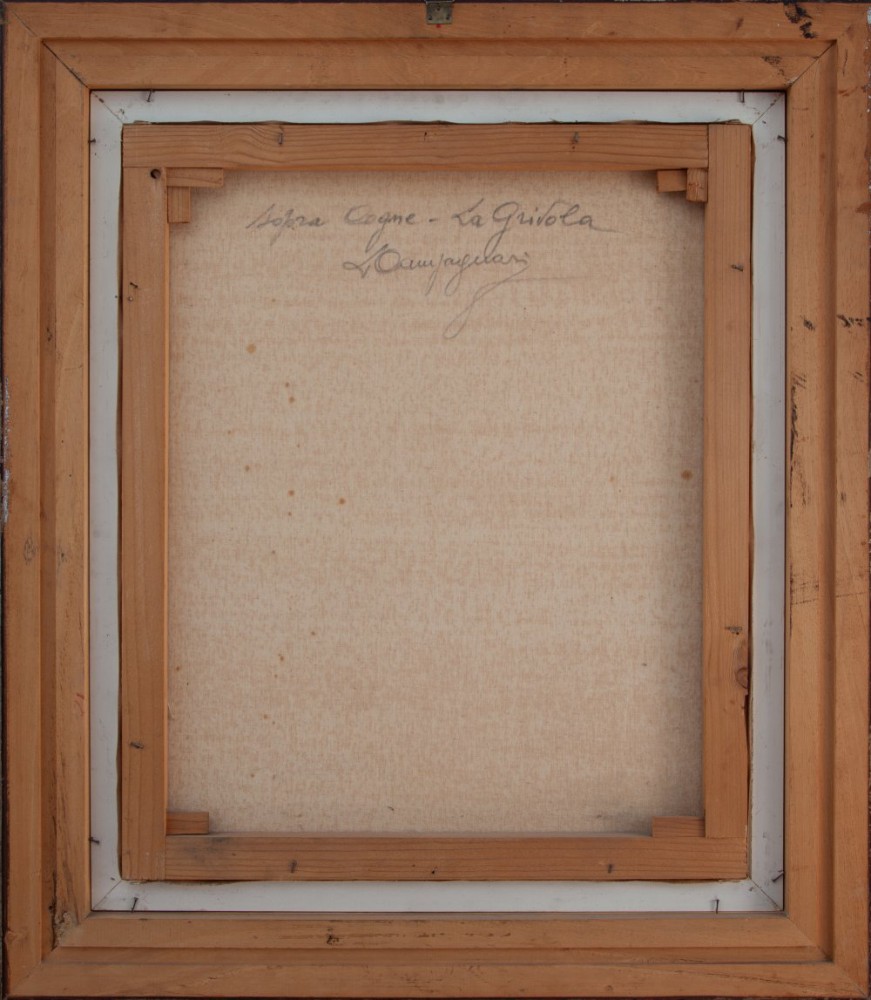 sopra Cogne - La Grivola
LCampagnari